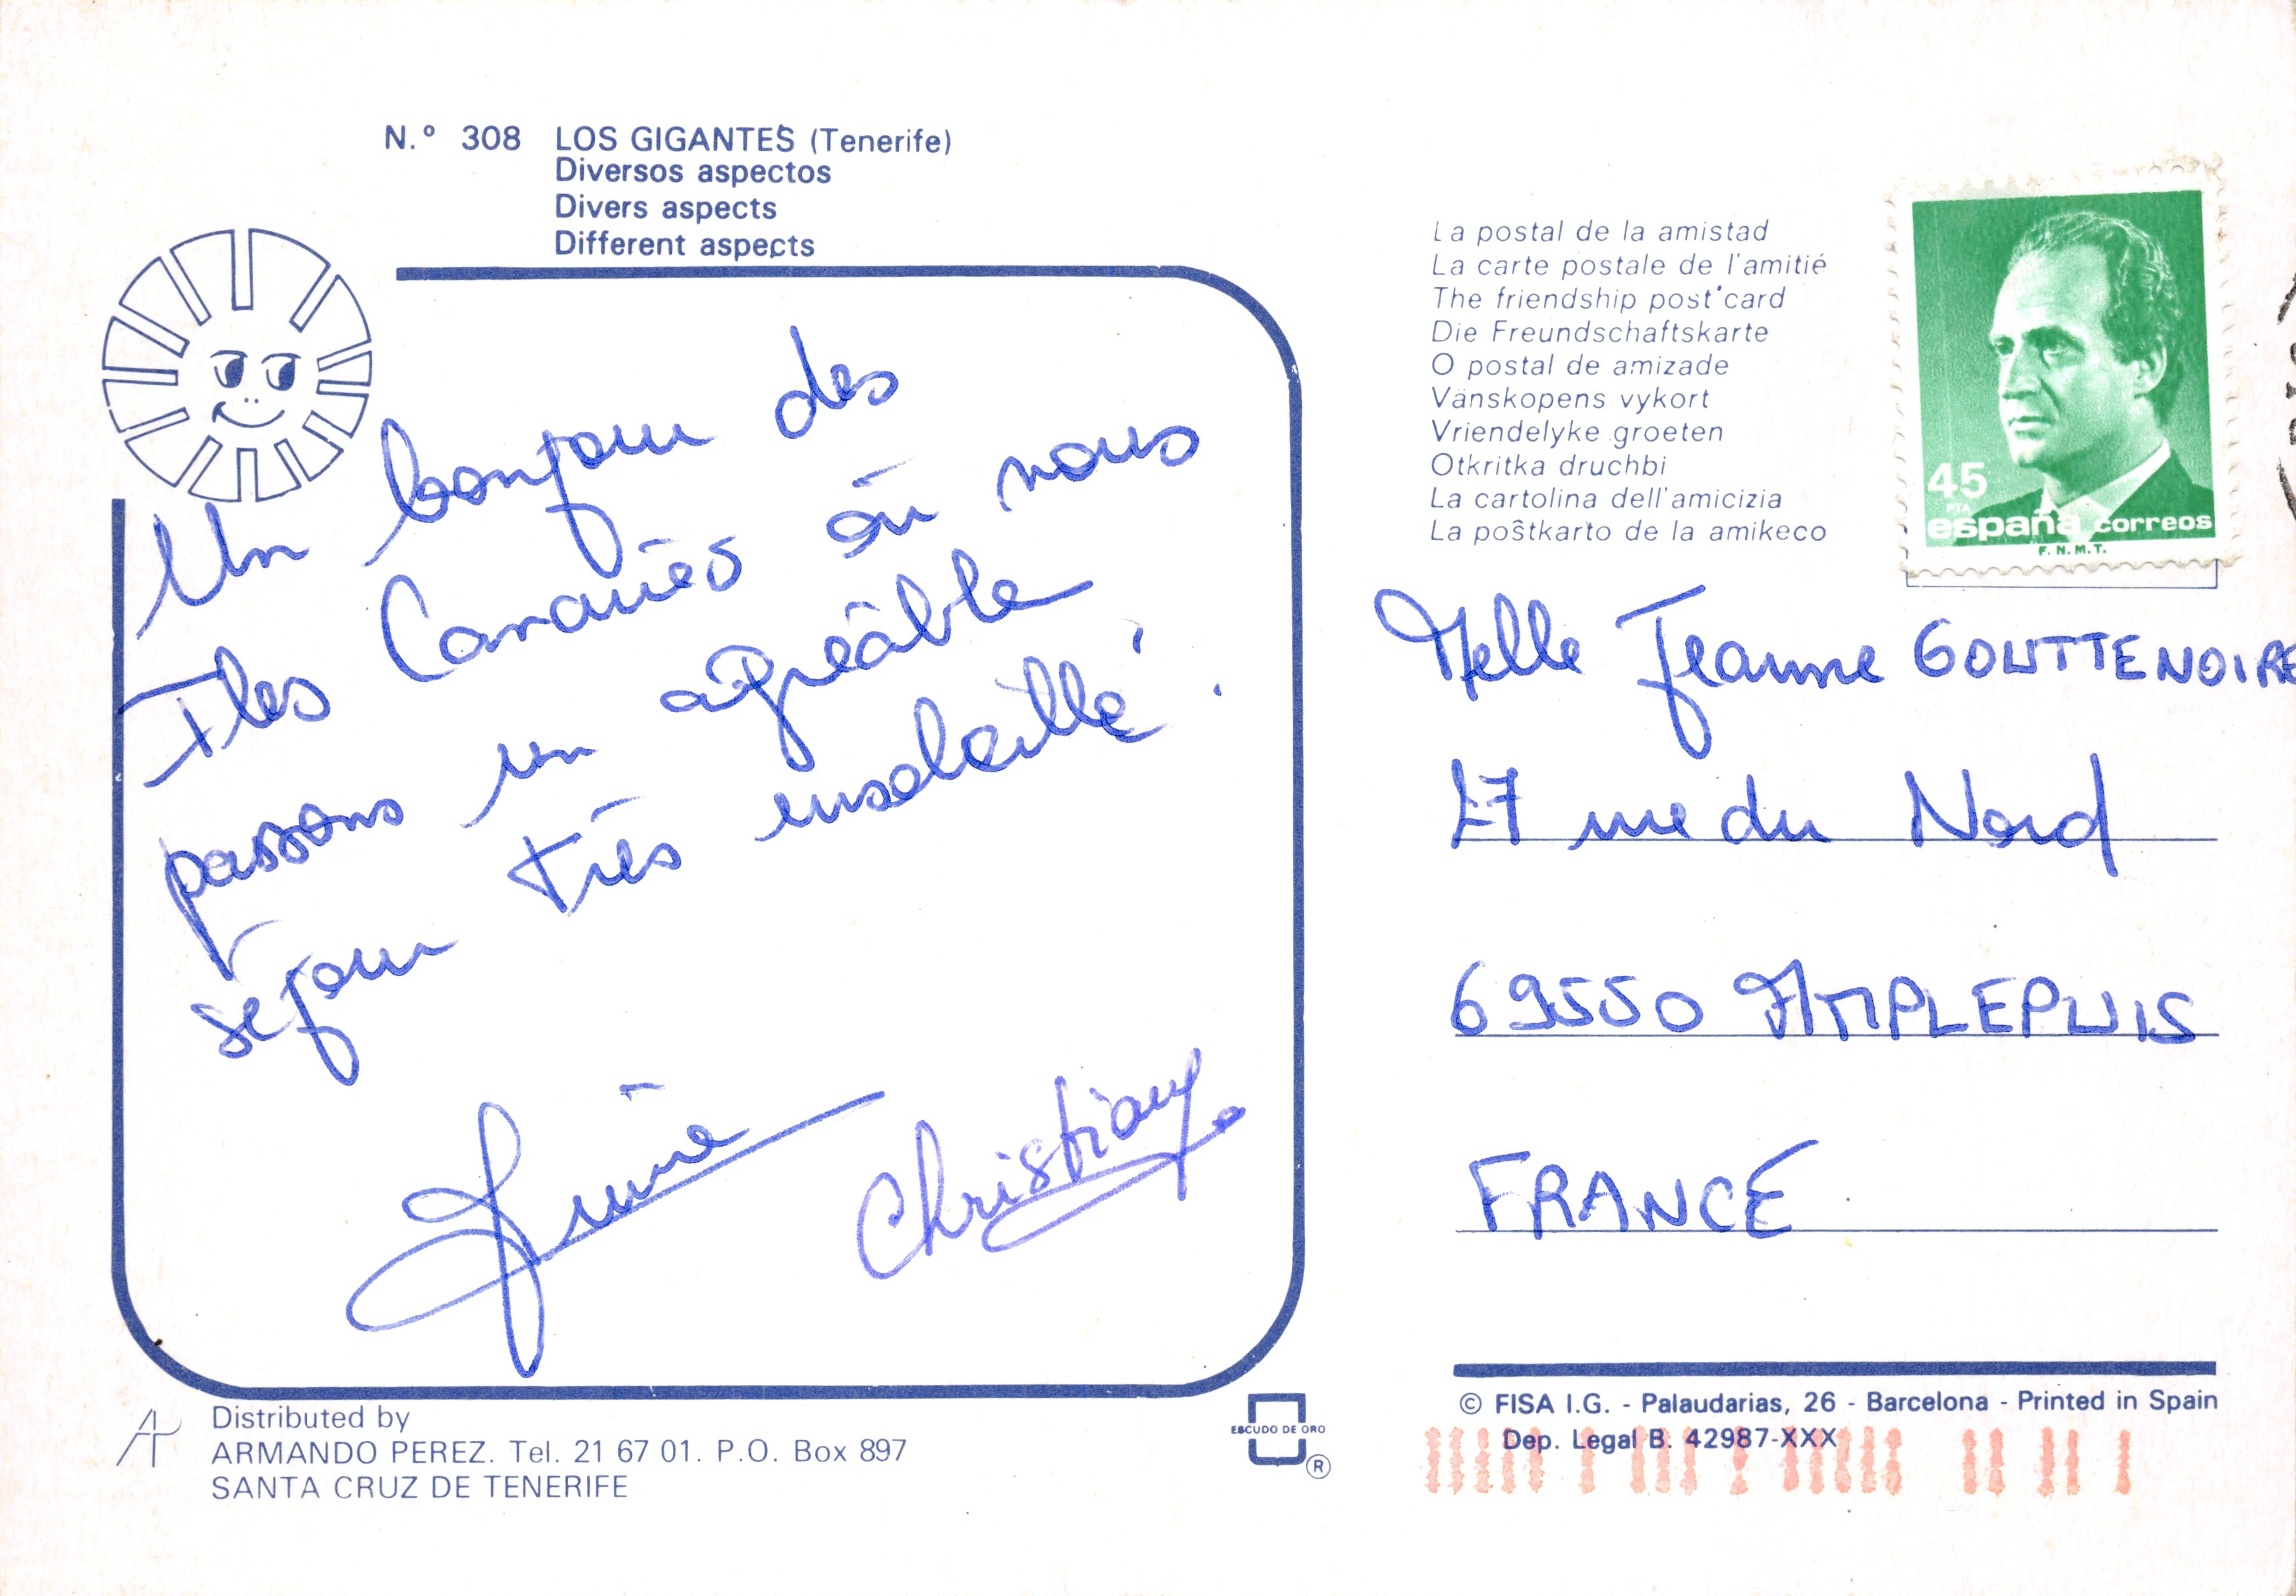 N.º 308 LOS GIGANTES (Tenerife)
Diversos aspectos
Divers aspects
Different aspects
Un bonjour des
Iles Canaries où nous
passons un agréable
séjour très ensoleillé.
Christiany
La postal de la amistad
La carte postale de l'amitié
The friendship post card
Die Freundschaftskarte
O postal de amizade
Vänskopens vykort
Vriendelyke groeten
Otkritka druchbi
La cartolina dell'amicizia
La poŝtkarto de la amikeco
45
PTA
españa correos
F.N.M.T.
Melle Jeanne GOUTTENOIRE
27 rue du Nord
69550 AMPLEPUIS
FRANCE
Distributed by
ARMANDO PEREZ. Tel. 21 67 01. P.O. Box 897
SANTA CRUZ DE TENERIFE
ESCUDO DE ORO
®
© FISA I.G. - Palaudarias, 26 - Barcelona - Printed in Spain
Dep. Legal B. 42987-XXX